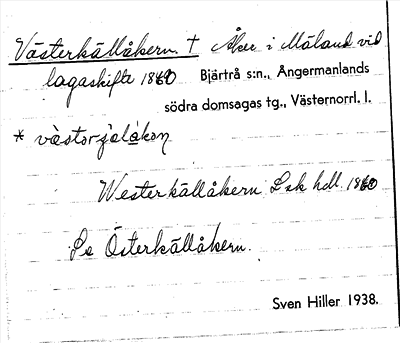 Västerkällåkern. † Åker i Mäland vid
lagaskifte 1860 Bjärtrå s:n., Ångermanlands
södra domsagas tg., Västernorrl. l.
* västorçelåkən
Westerkällåkern Lsk hdl. 1860
Se Österkällåkern.
Sven Hiller 1938.